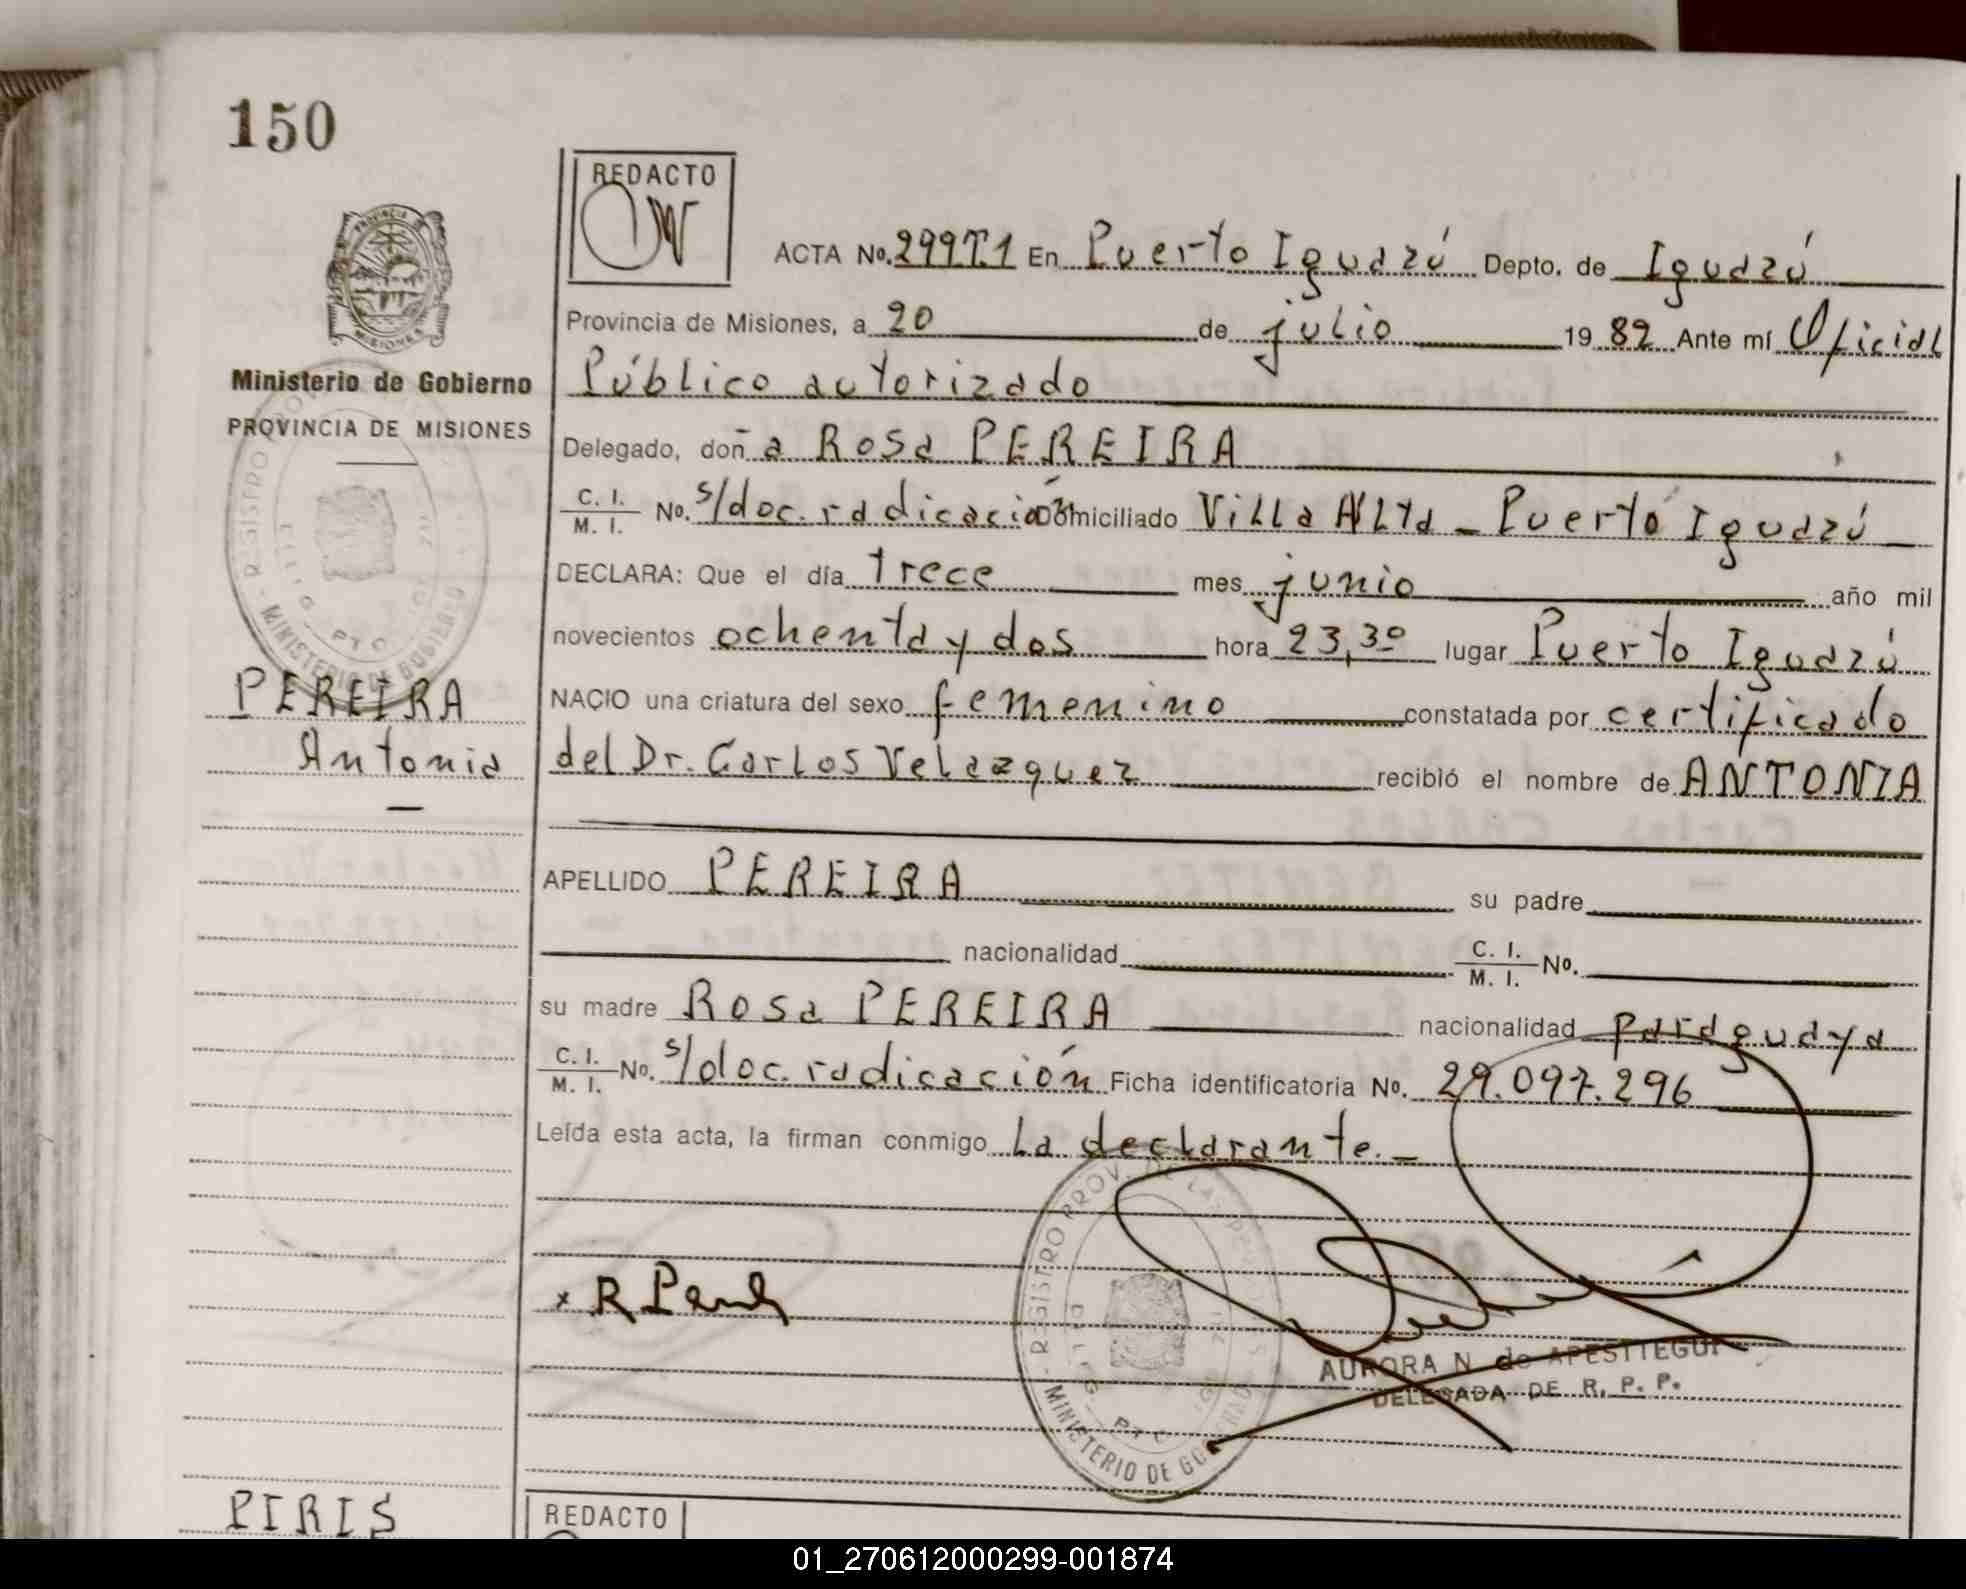 150
REDACTO
ACTA No. 299T.1 En Puerto Iguazú Depto. de Iguazú
Provincia de Misiones, a 20 de julio 1982 Ante mí Oficial
Ministerio de Gobierno
Público autorizado
PROVINCIA DE MISIONES
Delegado, doñ a Rosa PEREIRA
C. I. M. I. No. s/doc. radicación Domiciliado Villa Alta - Puerto Iguazú
DECLARA: Que el día trece mes junio año mil
novecientos ochenta y dos hora 23,30 lugar Puerto Iguazú
PEREIRA
NACIO una criatura del sexo femenino constatada por certificado
Antonia
del Dr. Carlos Velazquez recibió el nombre de ANTONIA
APELLIDO PEREIRA su padre
nacionalidad C. I. M. I. No.
su madre Rosa PEREIRA nacionalidad paraguaya
C. I. M. I. No. s/doc. radicación Ficha identificatoria No. 29.097.296
Leída esta acta, la firman conmigo la declarante. -
REGISTRO PROV. DE LAS
MINISTERIO DE GOBIERNO
AURORA N. de APESTTEGUI
DELEGADA DE R. P. P.
PIRIS
REDACTO
01_270612000299-001874